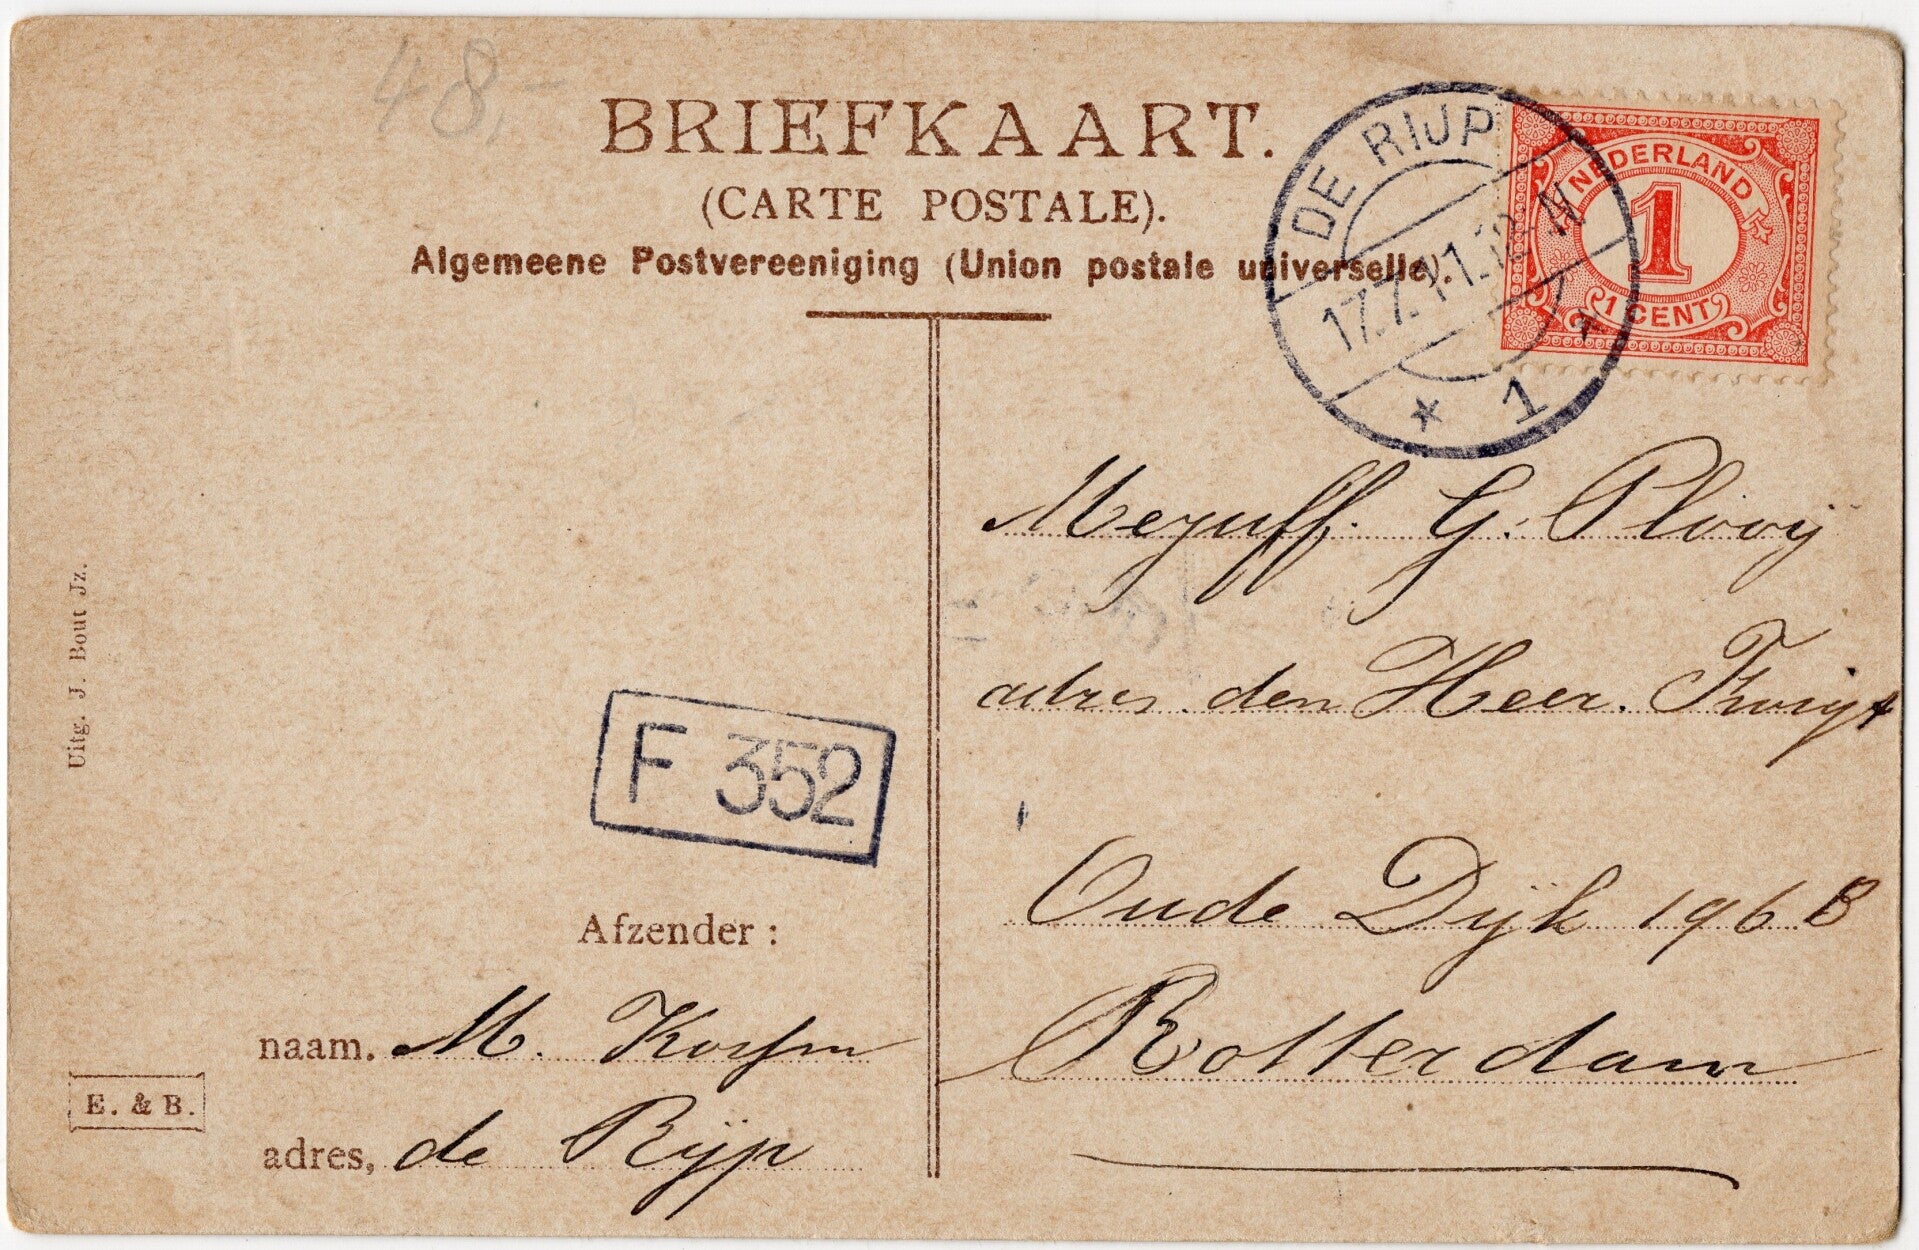 48,-
BRIEFKAART.
(CARTE POSTALE).
Algemeene Postvereeniging (Union postale universelle).
DE RIJP
17.7.11.12 N
1
NEDERLAND
1
1 CENT
Mejuff. G. Plooij
adres den Heer.
Oude Dijk 196 B
Rotterdam
Uitg. J. Bout Jz.
F 352
Afzender :
naam. M.
adres, de Rijp
E. & B.